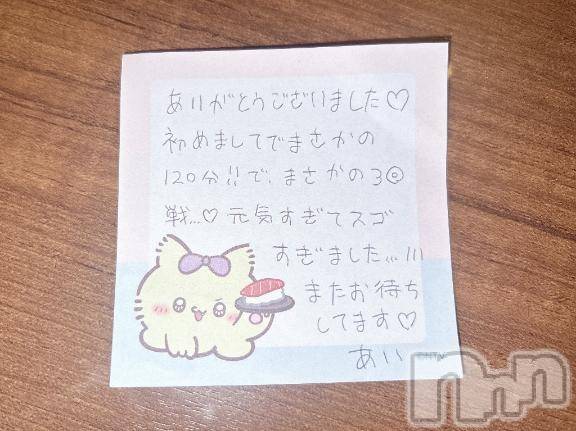 ありがとうございました♡
初めましてでまさかの
120分!!で、まさかの3回
戦...♡元気すぎてスゴ
すぎました...///
またお待ち
してます♡
あい